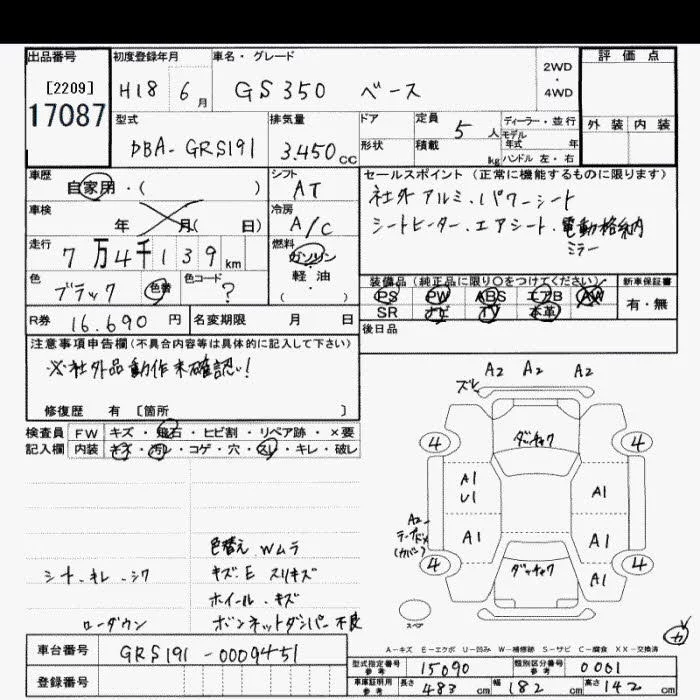 出品番号 初度登録年月 車名・グレード 評価点
[2209] H18 6月 GS350 ベース 2WD・4WD
17087
外装 内装
型式 排気量 ドア 定員 5人 ディーラー・並行
モデル年式 年
DBA-GRS191 3.450CC 形状 積載 kg ハンドル 左・右
車歴 自家用・( ) シフト AT
セールスポイント (正常に機能するものに限ります)
社外アルミ.パワーシート
シートヒーター.エアシート.電動格納
ミラー
車検 年 月( 日) 冷房 A/C
走行 7万4千139km 燃料 ガソリン・軽・油( )
色 ブラック 色替 色コード ?
装備品(純正品に限り○をつけてください) 新車保証書
PS PW ABS エアB AW 有・無
SR ナビ TV 本革
R券 16.690円 名変期限 月 日 後日品
注意事項申告欄(不具合内容等は具体的に記入して下さい)
※社外品動作未確認!
修復歴 有 [箇所 ]
検査員 FW キズ・飛石・ヒビ割・リペア跡・×要
記入欄 内装 キズ・汚レ・コゲ・穴・スレ・キレ・破レ
A2 A2 A2
ズレ
4 ダッチャク 4
A1
U1 A1
A2
A1 A1
4 ダッチャク 4
A1
スペア
色替え Wムラ
シート.キレ.シワ キズ.E スリキズ
ホイール.キズ
ローダウン ボンネットダンパー不良
A-キズ E-エクボ U-凹み W-補修跡 S-サビ C-腐食 XX-交換済
車台番号 GRS191-0009451
型式指定番号 参考 15090 類別区分番号 参考 0001
登録番号
車庫証明用 参考 長さ 483cm 幅 182cm 高さ 142cm